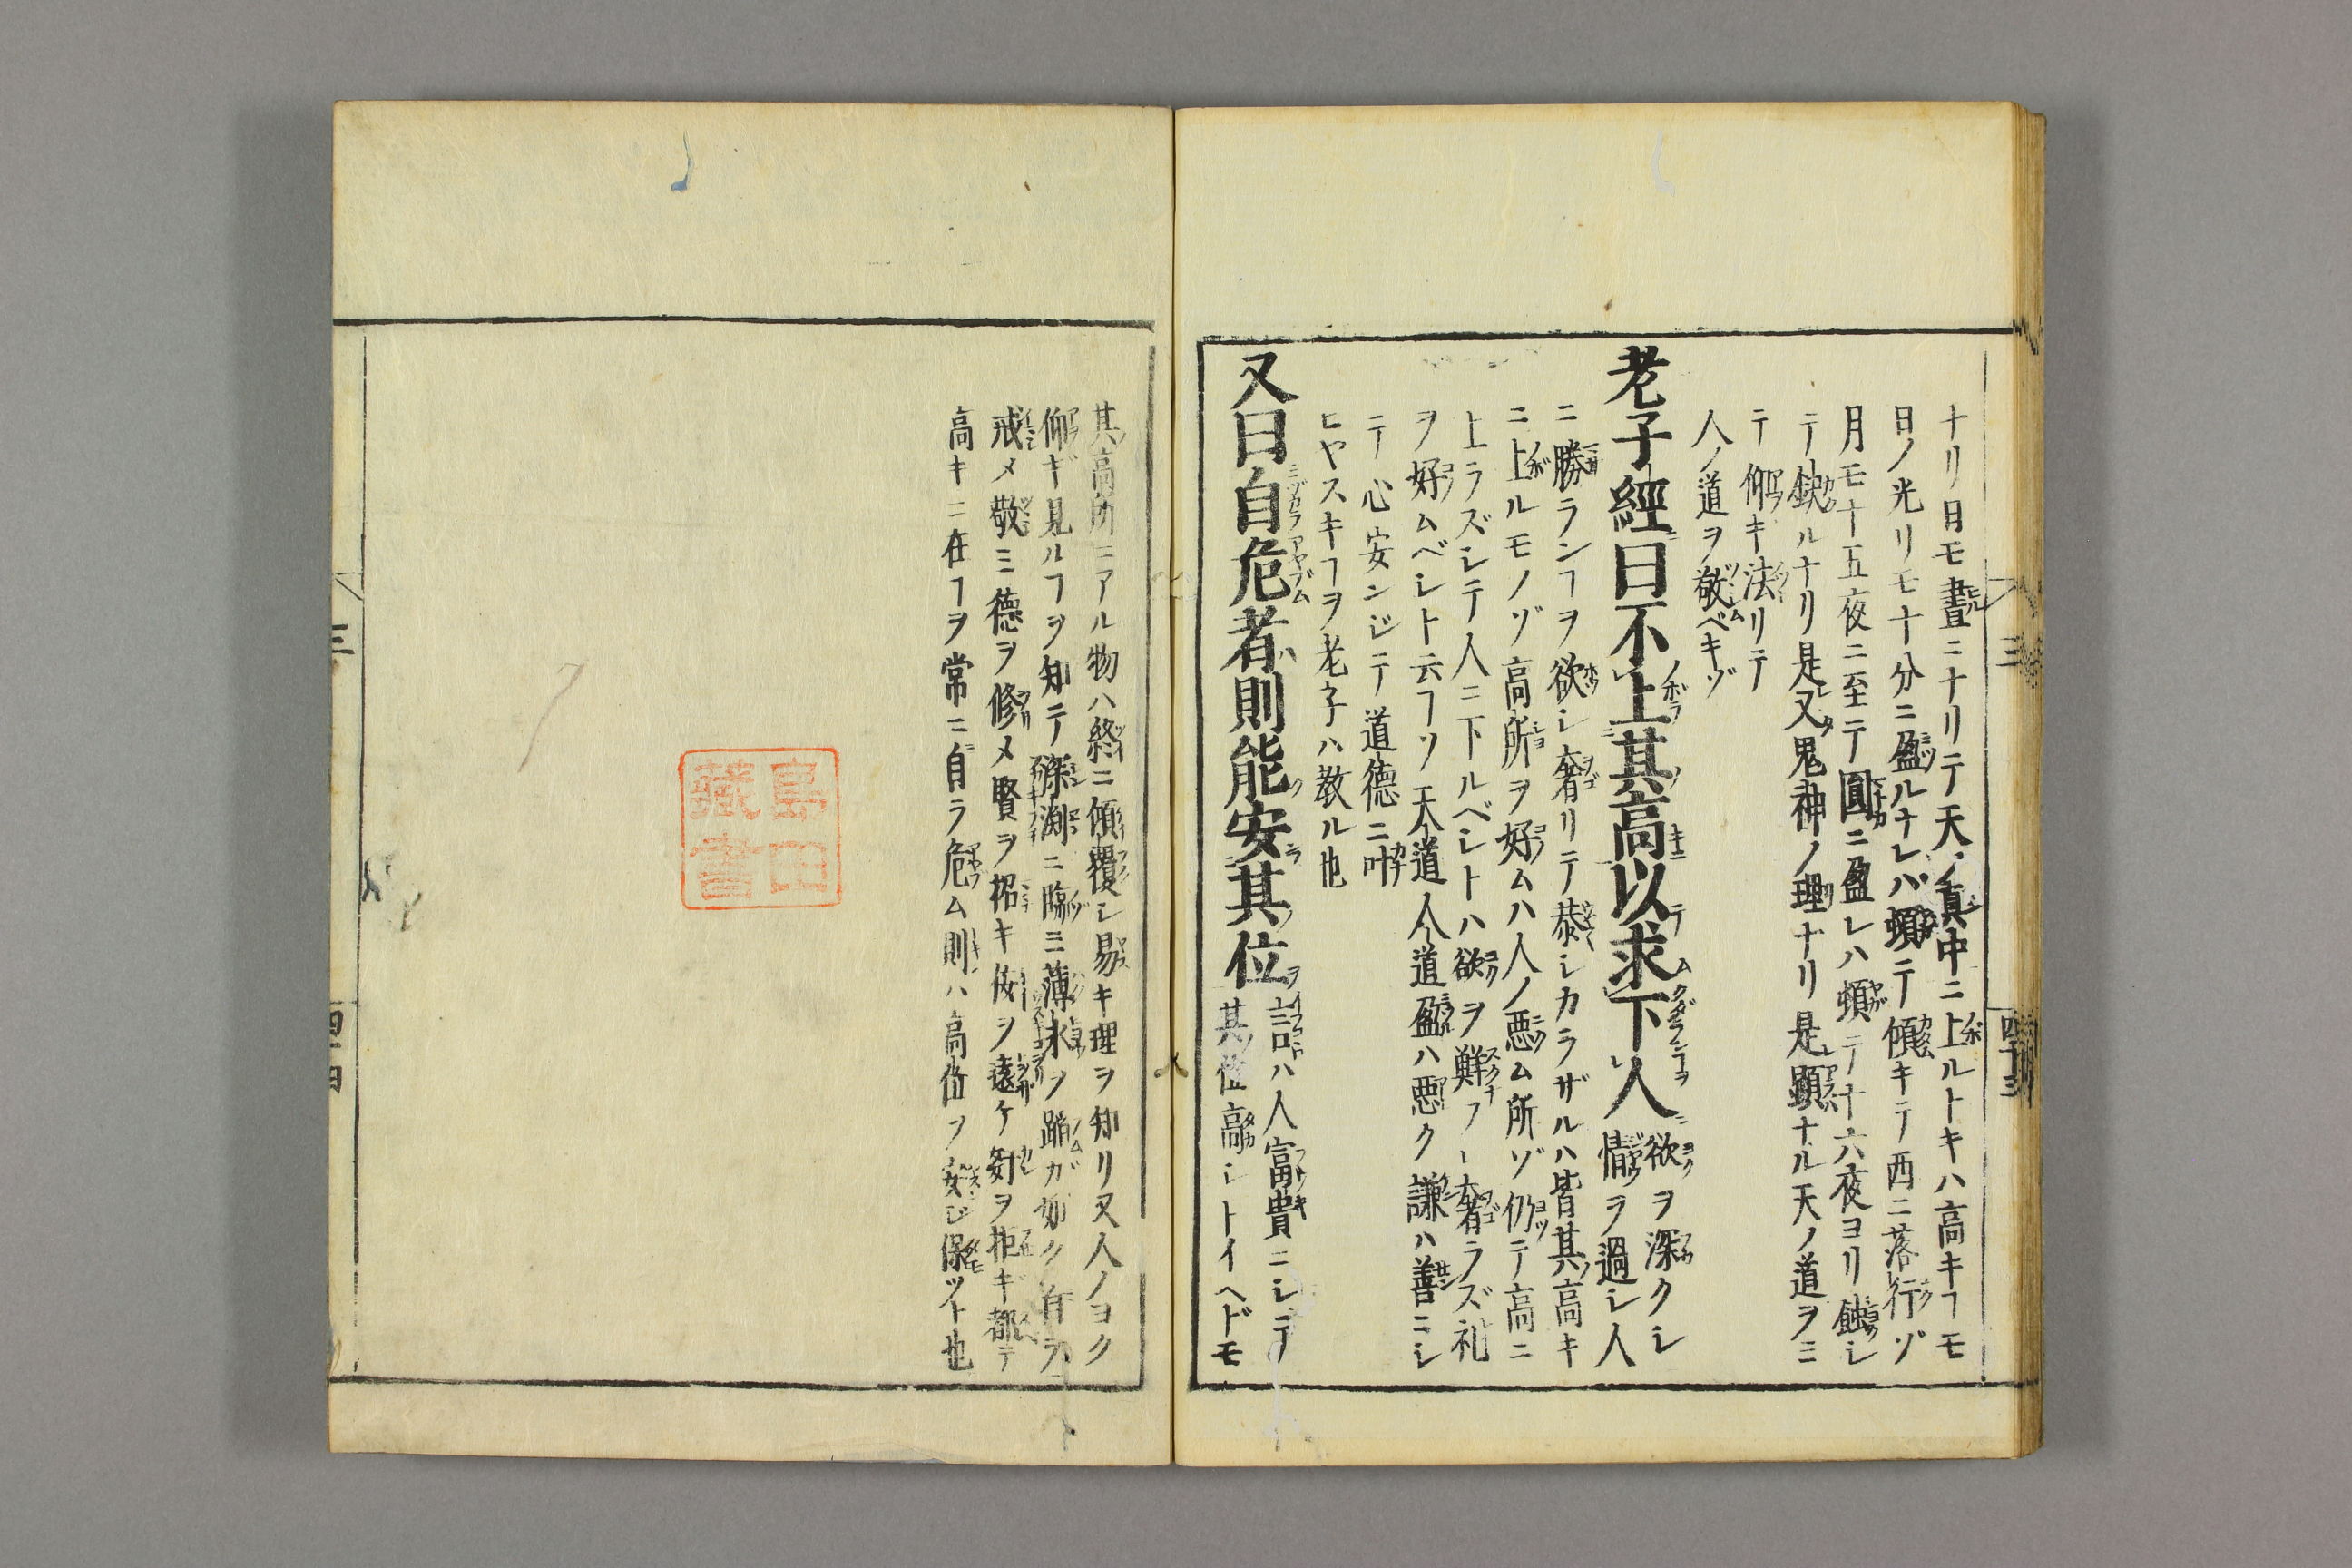 ナリ日モ晝ニナリテ天ノ眞中ニ上ルトキハ高キヿモ
日ノ光リモ十分ニ盈ルナレバ頓テ傾キテ西ニ落行ゾ
月モ十五夜ニ至テ圓ニ盈レハ頓テ十六夜ヨリ蝕シ
テ鈌ルナリ是又鬼神ノ理ナリ是顕ナル天ノ道ヲミ
テ仰キ法リテ
人ノ道ヲ敬ベキゾ
老子經曰不上其高以求下人
欲ヲ深クシ
情ヲ過シ人
ニ勝ランヿヲ欲シ奢リテ恭シカラザルハ皆其高キ
ニ上ルモノゾ高所ヲ好ムハ人ノ悪ム所ゾ仍テ高ニ
上ラズシテ人ニ下ルベシトハ欲ヲ鮮フ奢ラズ礼
ヲ好ムベシト云フソ天道人道盈ハ悪ク謙ハ善ニシ
テ心安ンジテ道徳ニ叶
ヒヤスキヿヲ老子ハ教ル也
又曰自危者則能安其位
言ハ人富貴ニシテ
其位高シトイヘドモ
其高所ニアル物ハ終ニ傾覆シ易キ理ヲ知リ又人ノヨク
仰ギ見ルヿヲ知テ深渕ニ臨ミ薄氷ヲ踏ガ如ク自ラ
戒メ敬ミ徳ヲ修メ賢ヲ招キ佞ヲ遠ケ剱ヲ拒ギ都テ
高キニ在ヿヲ常ニ自ラ危ム則ハ高位ヲ安ジ保ツト也
三
四十三
三
島田
藏書